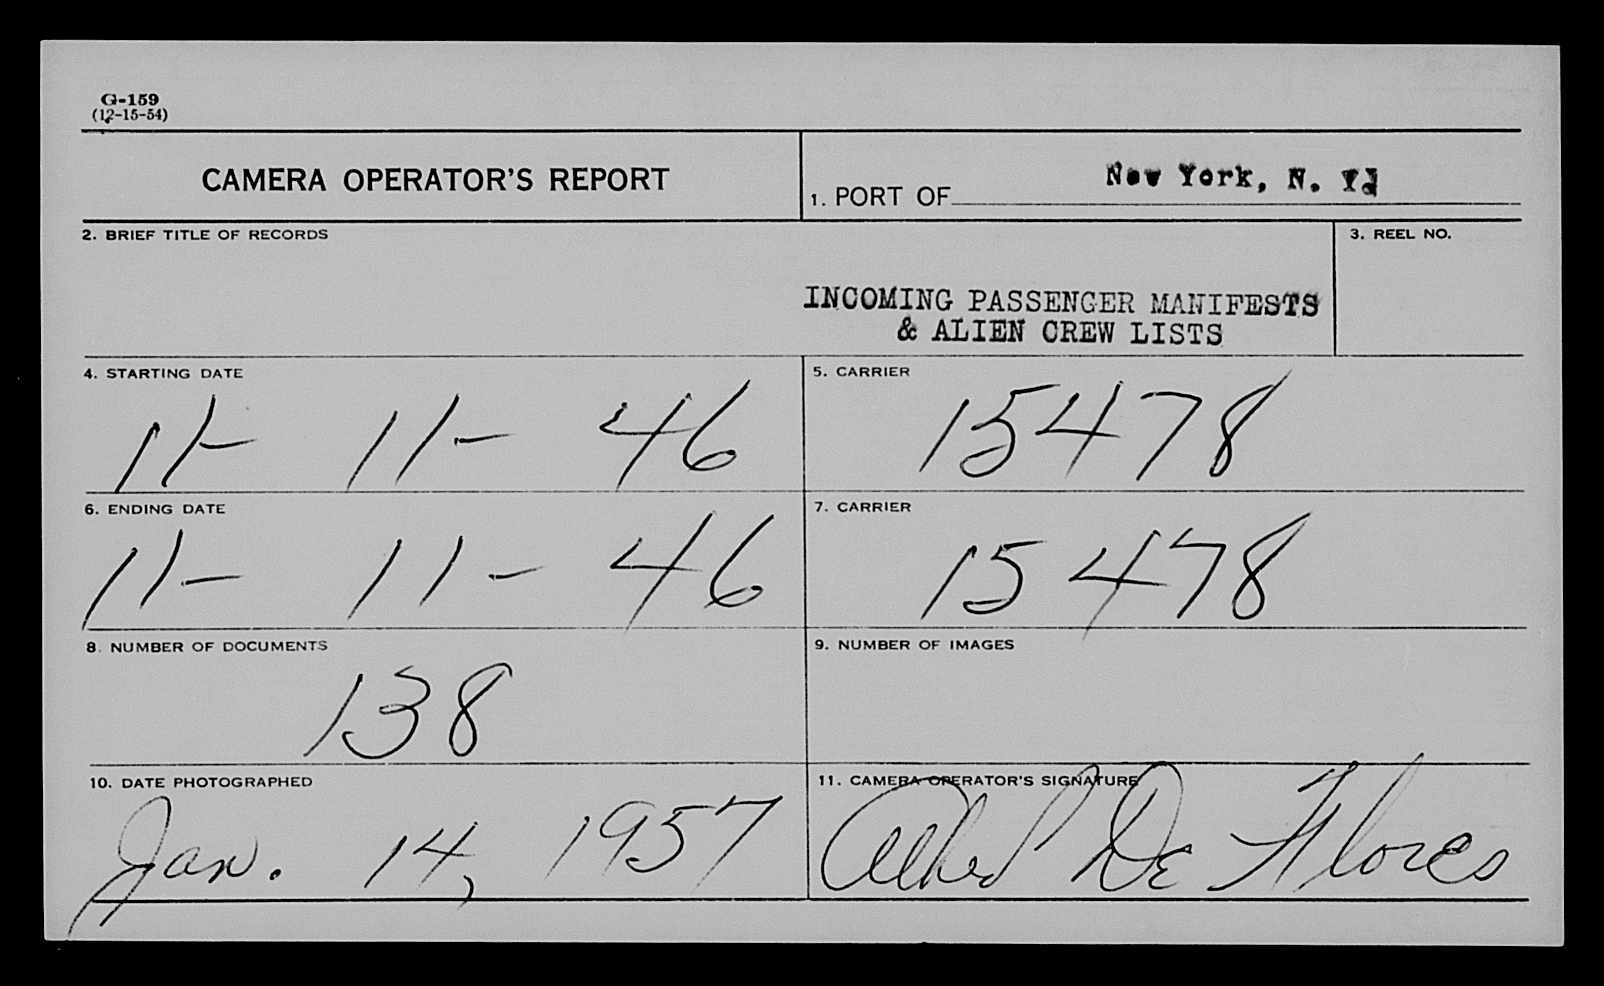 G-159
(12-15-54)
CAMERA OPERATOR'S REPORT
1. PORT OF New York, N. Y.
2. BRIEF TITLE OF RECORDS
3. REEL NO.
INCOMING PASSENGER MANIFESTS
& ALIEN CREW LISTS
4. STARTING DATE
11- 11- 46
5. CARRIER
15478
6. ENDING DATE
11- 11- 46
7. CARRIER
15478
8. NUMBER OF DOCUMENTS
138
9. NUMBER OF IMAGES
10. DATE PHOTOGRAPHED
Jan. 14, 1957
11. CAMERA OPERATOR'S SIGNATURE
De Flores